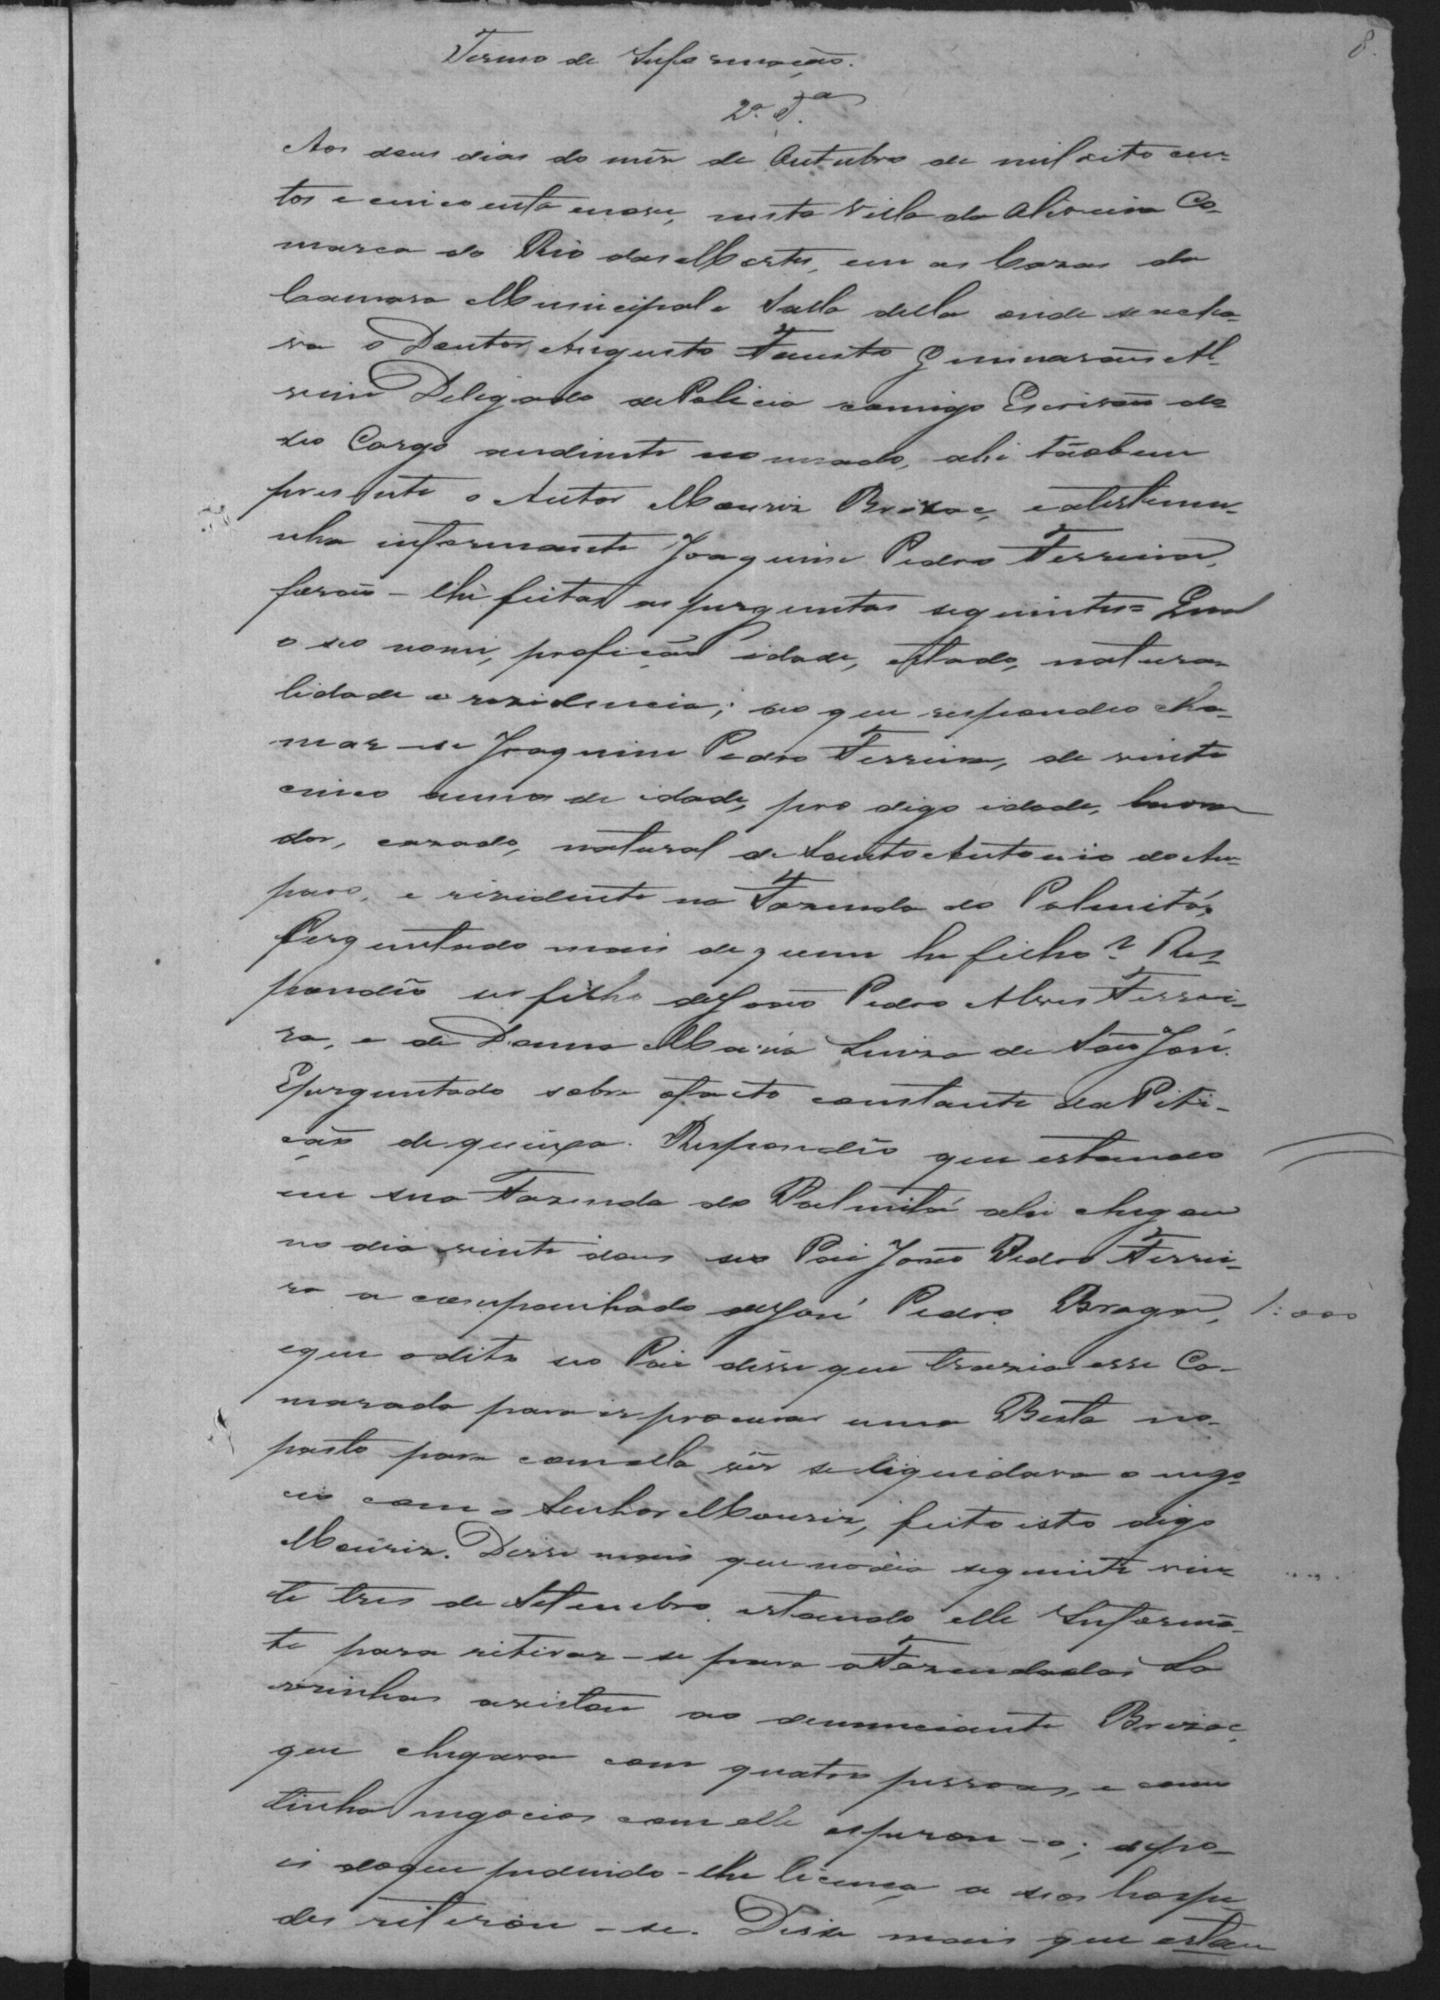 8.
Termo de Informação.
2.ª T.ª
Aos dous dias do mês de Outubro de mil oito cen-
tos e cincoenta e nove, nesta Villa da Oliveira Co-
marca do Rio das Mortes, em as Cazas da
Camara Municipal e Salla della onde se acha-
va o Doutor Augusto Fausto Guimarães Al-
vim Delegado de Policia comigo Escrivão de
seo Cargo audiante nomeado, ahi tãobem
presente o Autor Mauriz Brizac, e a testemu-
nha informante Joaquim Pedro Ferreira,
forão-lhe feitas as perguntas seguintes = Qual
o seo nome, profição idade, estado, natura-
lidade e rezidencia; ao que respondeo cha-
mar-se Joaquim Pedro Ferreira, de vinte
cinco annos de idade, pro digo idade, lavra-
dor, cazado, natural de Santo Antonio do Am-
paro, e rezidente na Fazenda do Palmitá,
Perguntado mais de quem he filho? Res-
pondêo ser filho de João Pedro Alves Ferrei-
ra, e de Donna Maria Luiza de São José.
E perguntado sobre o facto constante da Peti-
ção de queixa. Respondêo que estando
em sua Fazenda do Palmitá ahi chegou
no dia vinte dous seo Pai João Pedro Ferrei-
ra acompanhado de José Pedro Braga, 1:000
e que o dito seo Pai disse que trazia esse Ca-
marada para ir procurar uma Besta no
pasto para com ella vêr se liquidava o nego-
cio com o Senhor Mouriz, feito isto digo
Mauriz. Disse mais que no dia seguinte vin-
te tres de Setembro estando elle Informã-
te para retirar-se para a Fazenda das La
vrinhas avistou ao denunciante Brizac,
que chegava com quatro pessoas, e como
tinha negocios com elle esperou-o; depo-
is do que pedindo-lhe licença a seos hospe-
des retirou-se. Disse mais que estan